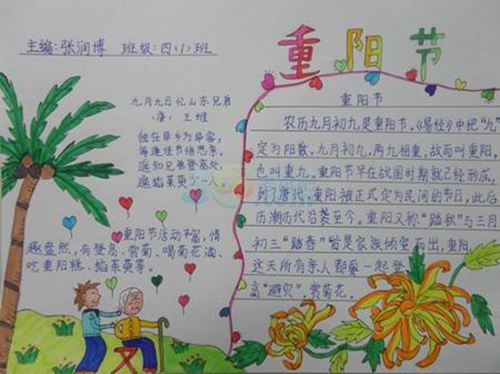 主编:张润博 班级:四(1)班
重阳节
九月九日忆山东兄弟
(唐) 王维
独在异乡为异客,
每逢佳节倍思亲,
遥知兄弟登高处,
遍插茱萸少一人。
重阳节活动丰富,情
趣盎然,有登高、赏菊、喝菊花酒、
吃重阳糕、插茱萸等。
重阳节
农历九月初九是重阳节。《易经》中把“九”
定为阳数,九月初九,两九相重,故而叫重阳,
也叫重九。重阳节早在战国时期就已经形成,
到了唐代,重阳被正式定为民间的节日,此后
历朝历代沿袭至今。重阳又称“踏秋”与三月
初三“踏春”皆是家族倾室而出,重阳
这天所有亲人都要一起登
高“避灾”,赏菊花。